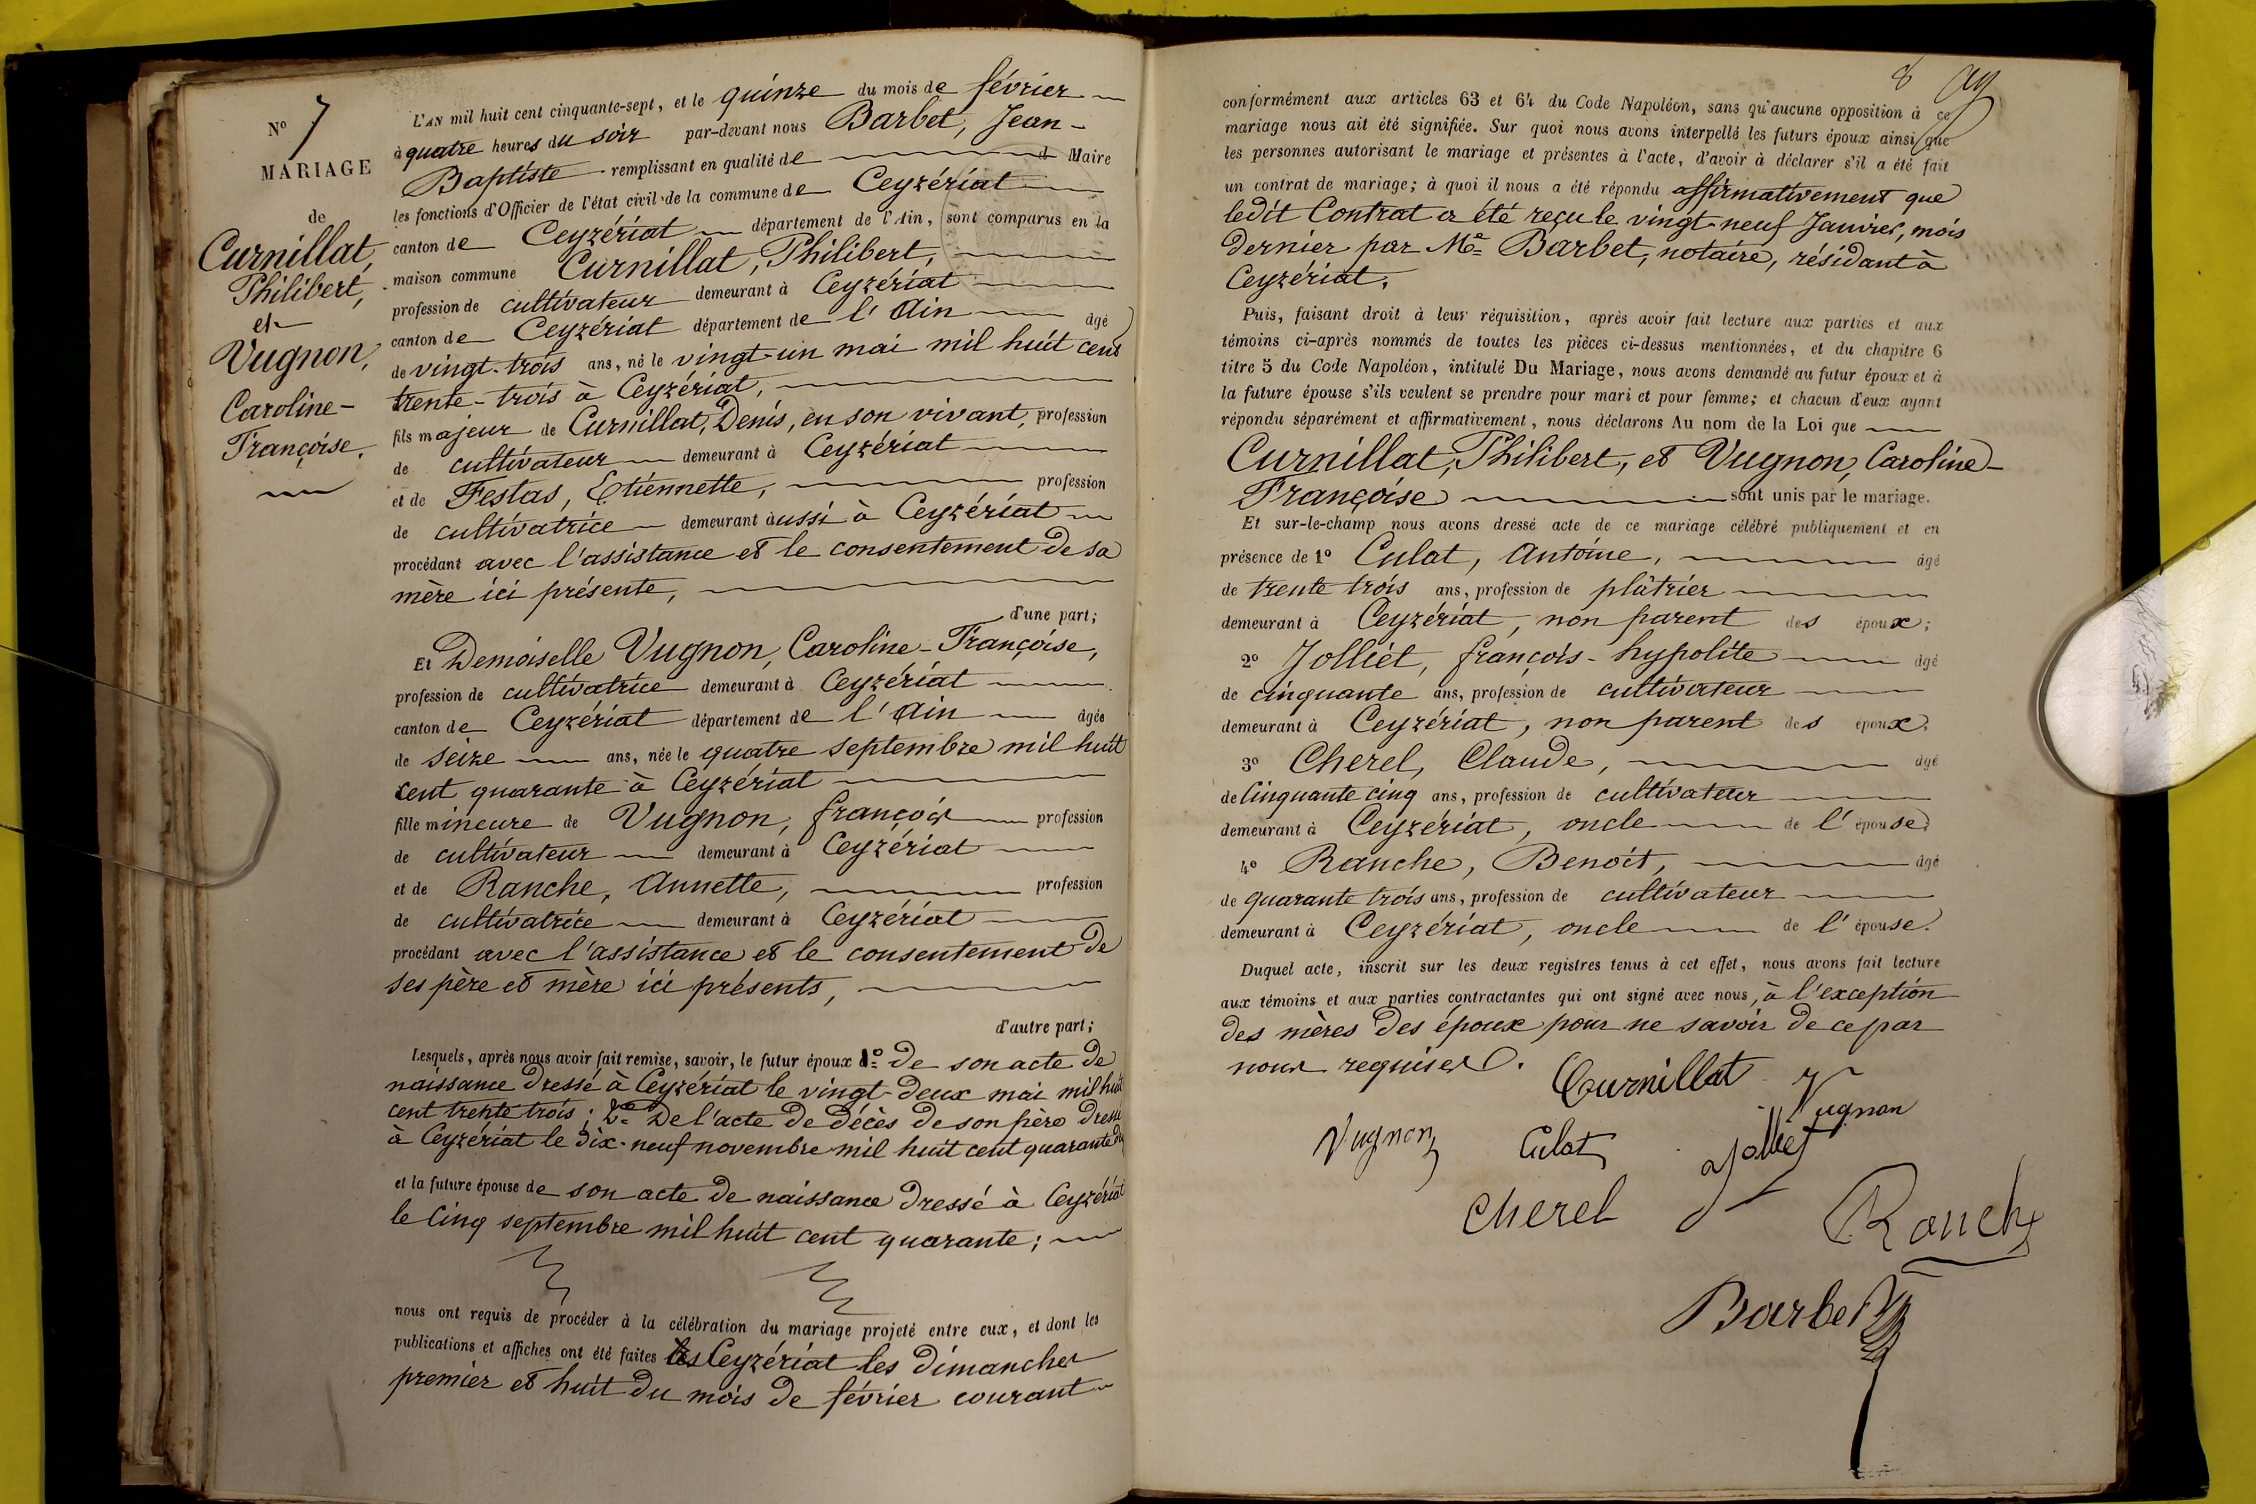 N° 7
MARIAGE
de
Curnillat,
Philibert,
et
Vugnon,
Caroline-
Françoise.
L'AN mil huit cent cinquante-sept, et le quinze du mois de février
à quatre heures du soir par-devant nous Barbet, Jean-
Baptiste remplissant en qualité de Maire
les fonctions d'Officier de l'état civil de la commune de Ceyzériat
canton de Ceyzériat département de l'Ain, sont comparus en la
maison commune Curnillat, Philibert,
profession de cultivateur demeurant à Ceyzériat
canton de Ceyzériat département de l'Ain âgé
de vingt-trois ans, né le vingt-un mai mil huit cent
trente-trois à Ceyzériat,
fils majeur de Curnillat, Denis, en son vivant, profession
de cultivateur demeurant à Ceyzériat
et de Festas, Etiennette, profession
de cultivatrice demeurant aussi à Ceyzériat
procédant avec l'assistance et le consentement de sa
mère ici présente,
d'une part;
Et Demoiselle Vugnon, Caroline-Françoise,
profession de cultivatrice demeurant à Ceyzériat
canton de Ceyzériat département de l'Ain âgée
de seize ans, née le quatre septembre mil huit
cent quarante à Ceyzériat
fille mineure de Vugnon, françois profession
de cultivateur demeurant à Ceyzériat
et de Ranche, Annette, profession
de cultivatrice demeurant à Ceyzériat
procédant avec l'assistance et le consentement de
ses père et mère ici présents,
d'autre part;
Lesquels, après nous avoir fait remise, savoir, le futur époux 1° de son acte de
naissance dressé à Ceyzériat le vingt-deux mai mil huit
cent trente trois; 2° De l'acte de décès de son père dressé
à Ceyzériat le dix-neuf novembre mil huit cent quarante
et la future épouse de son acte de naissance dressé à Ceyzériat
le cinq septembre mil huit cent quarante;
nous ont requis de procéder à la célébration du mariage projeté entre eux, et dont les
publications et affiches ont été faites Ceyzériat les dimanches
premier et huit du mois de février courant
8
conformément aux articles 63 et 64 du Code Napoléon, sans qu'aucune opposition à ce
mariage nous ait été signifiée. Sur quoi nous avons interpellé les futurs époux ainsi que
les personnes autorisant le mariage et présentes à l'acte, d'avoir à déclarer s'il a été fait
un contrat de mariage; à quoi il nous a été répondu affirmativement que
ledit Contrat a été reçu le vingt neuf Janvier, mois
dernier par Me Barbet, notaire, résidant à
Ceyzériat.
Puis, faisant droit à leur réquisition, après avoir fait lecture aux parties et aux
témoins ci-après nommés de toutes les pièces ci-dessus mentionnées, et du chapitre 6
titre 5 du Code Napoléon, intitulé Du Mariage, nous avons demandé au futur époux et à
la future épouse s'ils veulent se prendre pour mari et pour femme; et chacun d'eux ayant
répondu séparément et affirmativement, nous déclarons Au nom de la Loi que
Curnillat, Philibert, et Vugnon, Caroline-
Françoise sont unis par le mariage.
Et sur-le-champ nous avons dressé acte de ce mariage célébré publiquement et en
présence de 1° Culat, Antoine, âgé
de trente trois ans, profession de plâtrier
demeurant à Ceyzériat, non parent des époux;
2° Jolliet, françois-hypolite âgé
de cinquante ans, profession de cultivateur
demeurant à Ceyzériat, non parent des époux;
3° Cherel, Claude, âgé
de Cinquante cinq ans, profession de cultivateur
demeurant à Ceyzériat, oncle de l'épouse;
4° Ranche, Benoit, âgé
de quarante trois ans, profession de cultivateur
demeurant à Ceyzériat, oncle de l'épouse.
Duquel acte, inscrit sur les deux registres tenus à cet effet, nous avons fait lecture
aux témoins et aux parties contractantes qui ont signé avec nous, à l'exception
des mères des époux pour ne savoir de ce par
nous requises.
Curnillat Vugnon
Vugnon Culat Jolliet
Cherel Ranche
Barbet